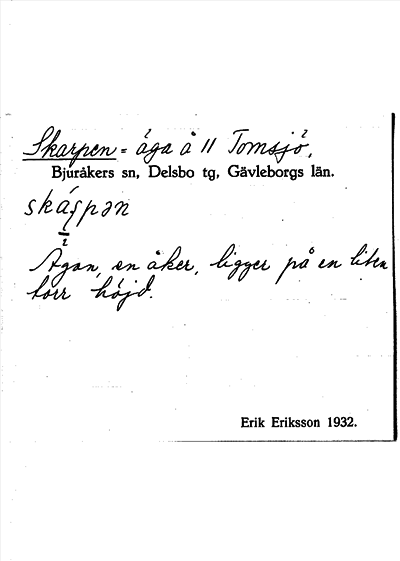 Skarpen = äga å 11 Tomsjö.
Bjuråkers sn, Delsbo tg, Gävleborgs län.
Ägan, en åker, ligger på en liten
torr höjd.
Erik Eriksson 1932.